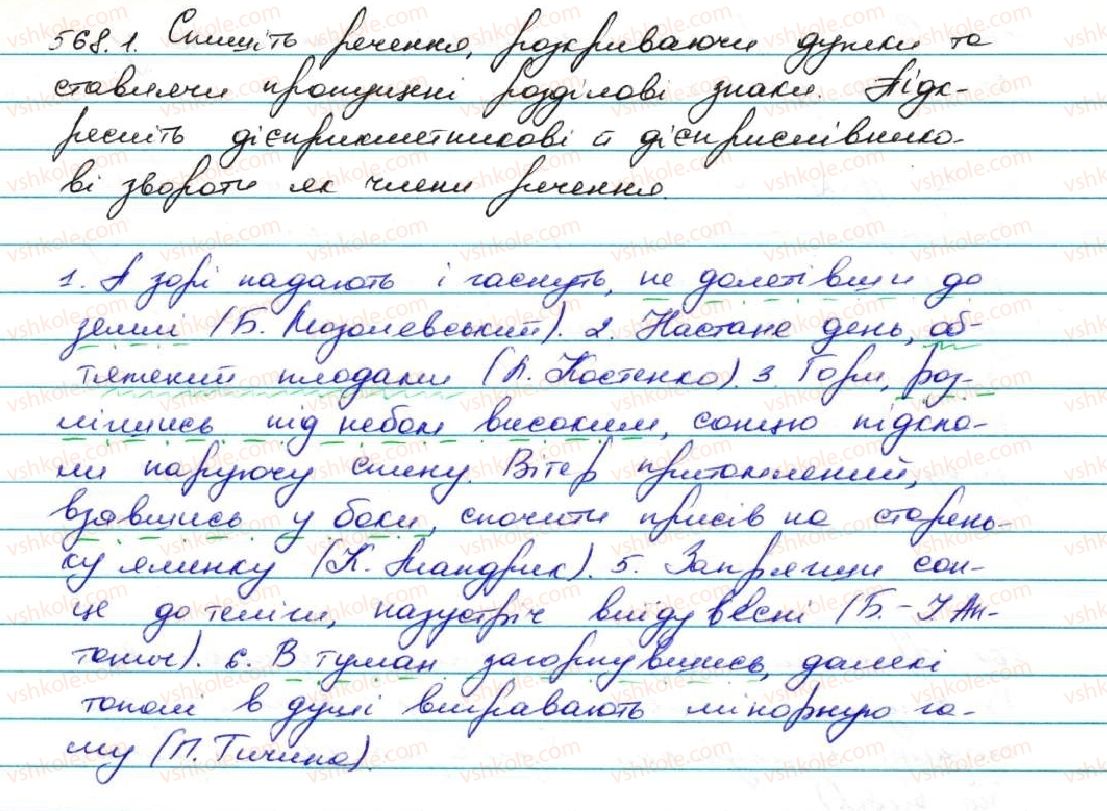 568.1. Спишіть речення, розкриваючи дужки та
ставлячи пропущені розділові знаки. Підк-
ресліть дієприкметникові й дієприслівнико-
ві звороти як члени речення.
1. А зорі падають і гаснуть, не долетівши до
землі (Б. Мозолевський). 2. Настане день, об-
тяжений плодами (Л. Костенко). 3. Гори, роз-
мlілись під небом високим, сонцю підста-
ми паруючу спину. Вітер притомлений,
взявшись у боки, спочити присів на старень-
ку ялинку (К. Мандрик). 5. Запрягши сон-
це до теліги, назустріч виїду весні (Б.-І. Ан-
тонич). 6. В туман загорнувшись, далекі
тополі в душі вигравають мінорную га-
му (П. Тичина).